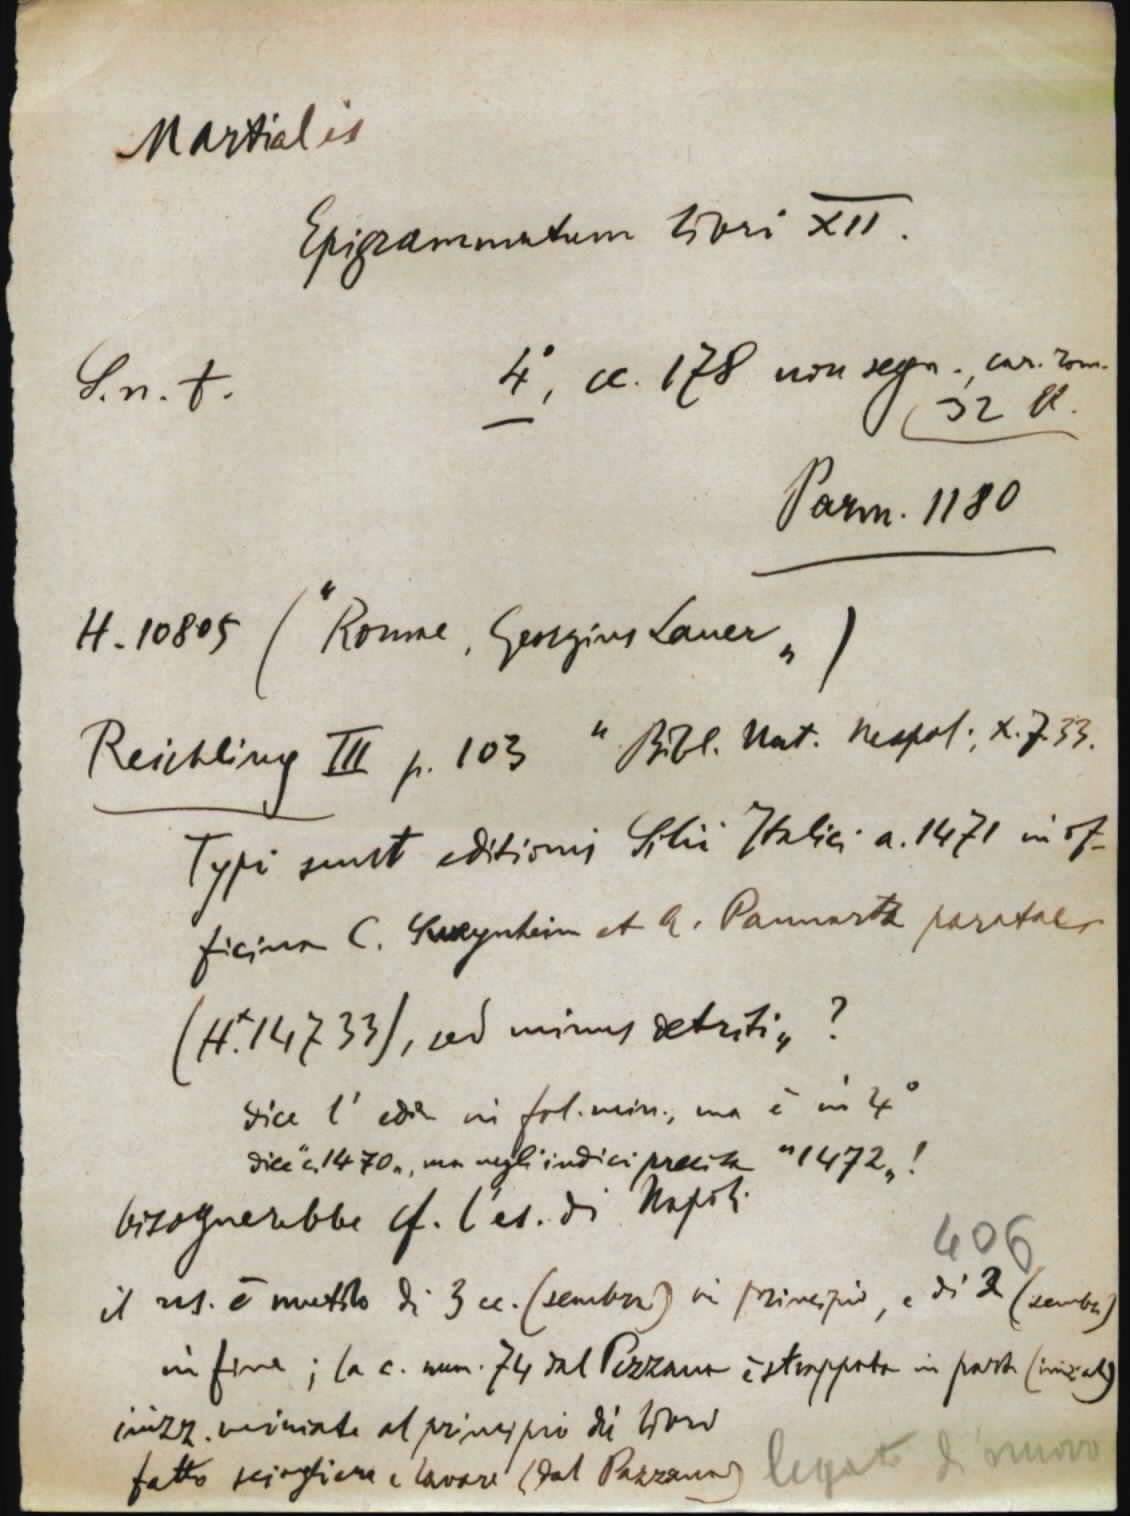 Martialis
Epigrammatum libri XII.
S.n.t. 4°, cc. 178 non segn., car. rom.
32 ll.
Parm. 1180
H. 10805 ("Romae, Georgius Lauer„)
Reichling III p. 103 " Bibl. Nat. Neapol., X.7.33.
Typi sunt editionis Silii Italici a. 1471 in of-
ficina C. Sweynheim et A. Pannartz paratae
(H.* 14733), sed minus detriti„ ?
dice l' ediz in fol. min., ma è in 4°
dice "c. 1470„, ma negli indici precisa "1472„!
bisognerebbe cf. l'es. di Napoli
406
il ns. è mutilo di 3 cc. (sembra) in principio, e di 2 (sembra)
in fine; la c. num. 74 dal Pezzana è strappata in parte
inizz. miniate al principio dei libri
fatto sciogliere e lavare (dal Pezzana) legato di nuovo